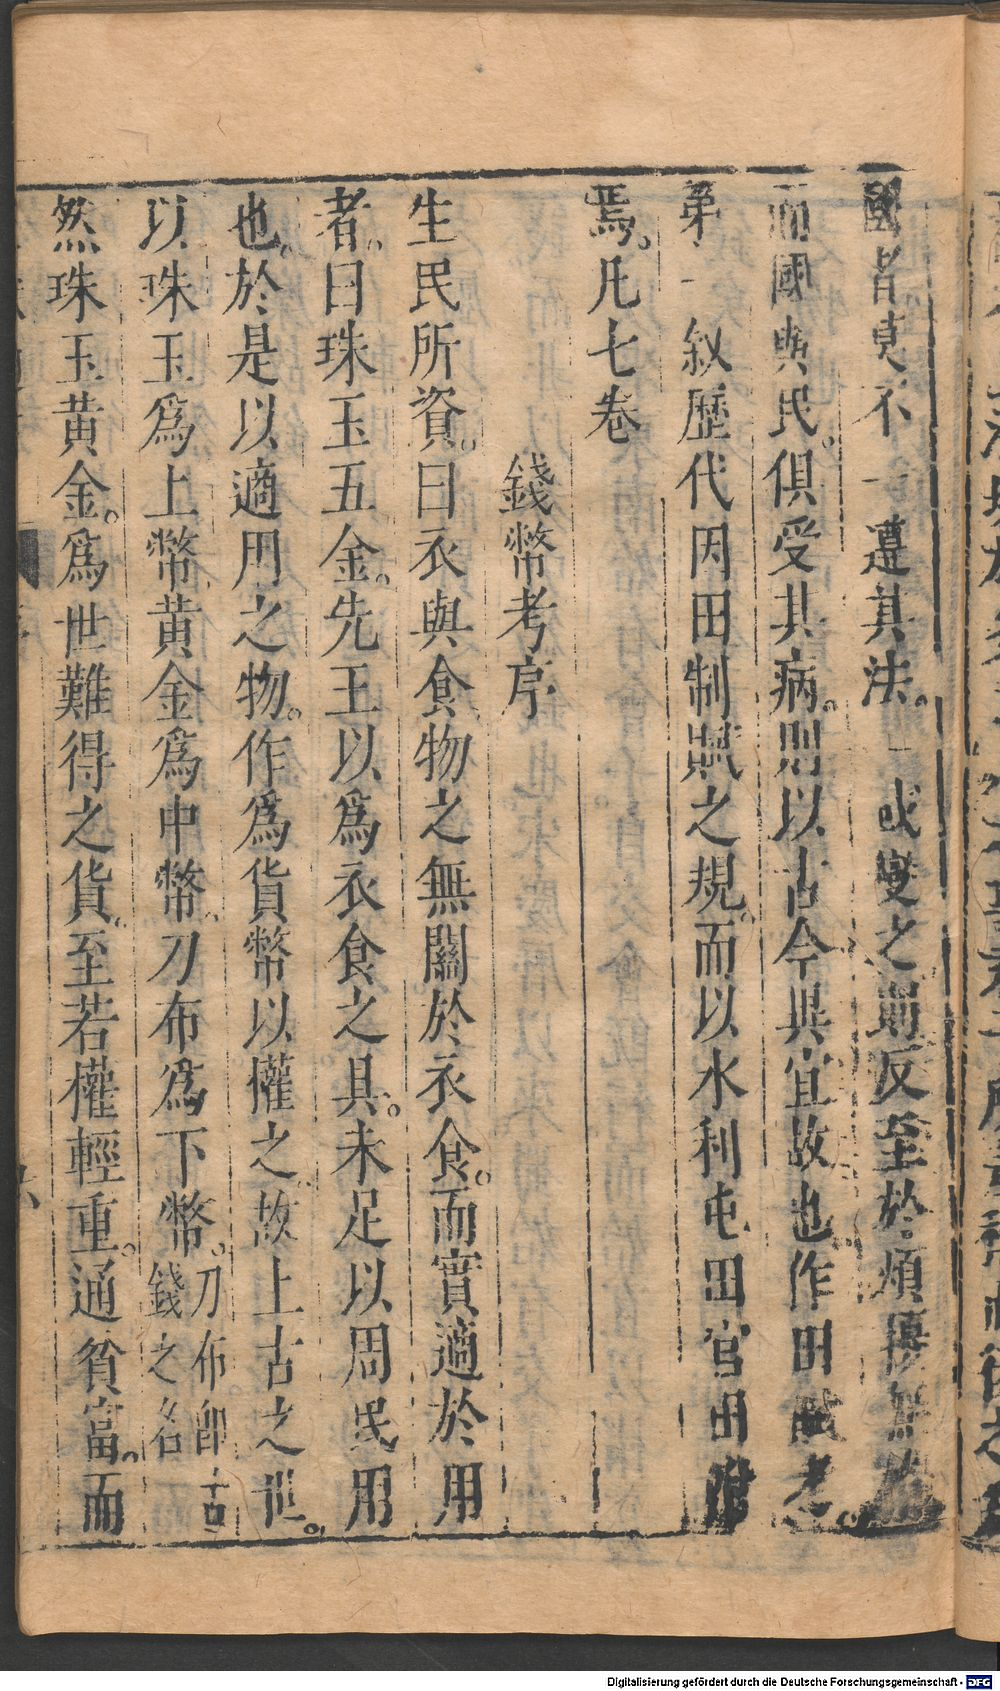 國者莫不一遵其法。一或變之則反至於煩擾無
而國與民。俱受其病。則以古今異宜故也作田賦考。
第一叙歷代因田制賦之規。而以水利屯田官田附
焉。凡七卷
錢幣考序
生民所資。曰衣與食物之無關於衣食。而實適於用
者。曰珠玉五金。先王以爲衣食之具。未足以周民用
也。於是以適用之物。作爲貨幣以權之。故上古之世。
以珠玉爲上幣黃金爲中幣。刀布爲下幣。刀布。卽古錢之名
然珠玉黃金。爲世難得之貨。至若權輕重。通貧富。而
Digitalisierung gefördert durch die Deutsche Forschungsgemeinschaft - DFG